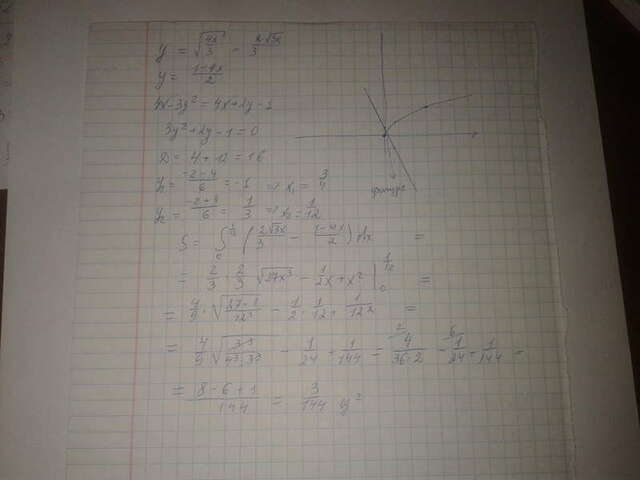 y = √(4x/3) = 2√3x/3
y = (1-4x)/2
4x-3y² = 4x+2y-1
3y²+2y-1=0
D = 4+12 = 16
y₁ = (-2-4)/6 = -1 ⇒ x₁ = 3/4
y₂ = (-2+4)/6 = 1/3 ⇒ x₂ = 1/12
S = ∫₀^(1/12) (2√3x/3 - (1-4x)/2) dx =
= 2/3 · 2/3 √27x³ - 1/2x + x² |₀^(1/12) =
= 4/9 · √(27·1/12³) - 1/2 · 1/12 + 1/12² =
= 4/9 √(3³/4³·3³) - 1/24 + 1/144 = 4/36·2 - 1/24 + 1/144 =
= (8-6+1)/144 = 3/144